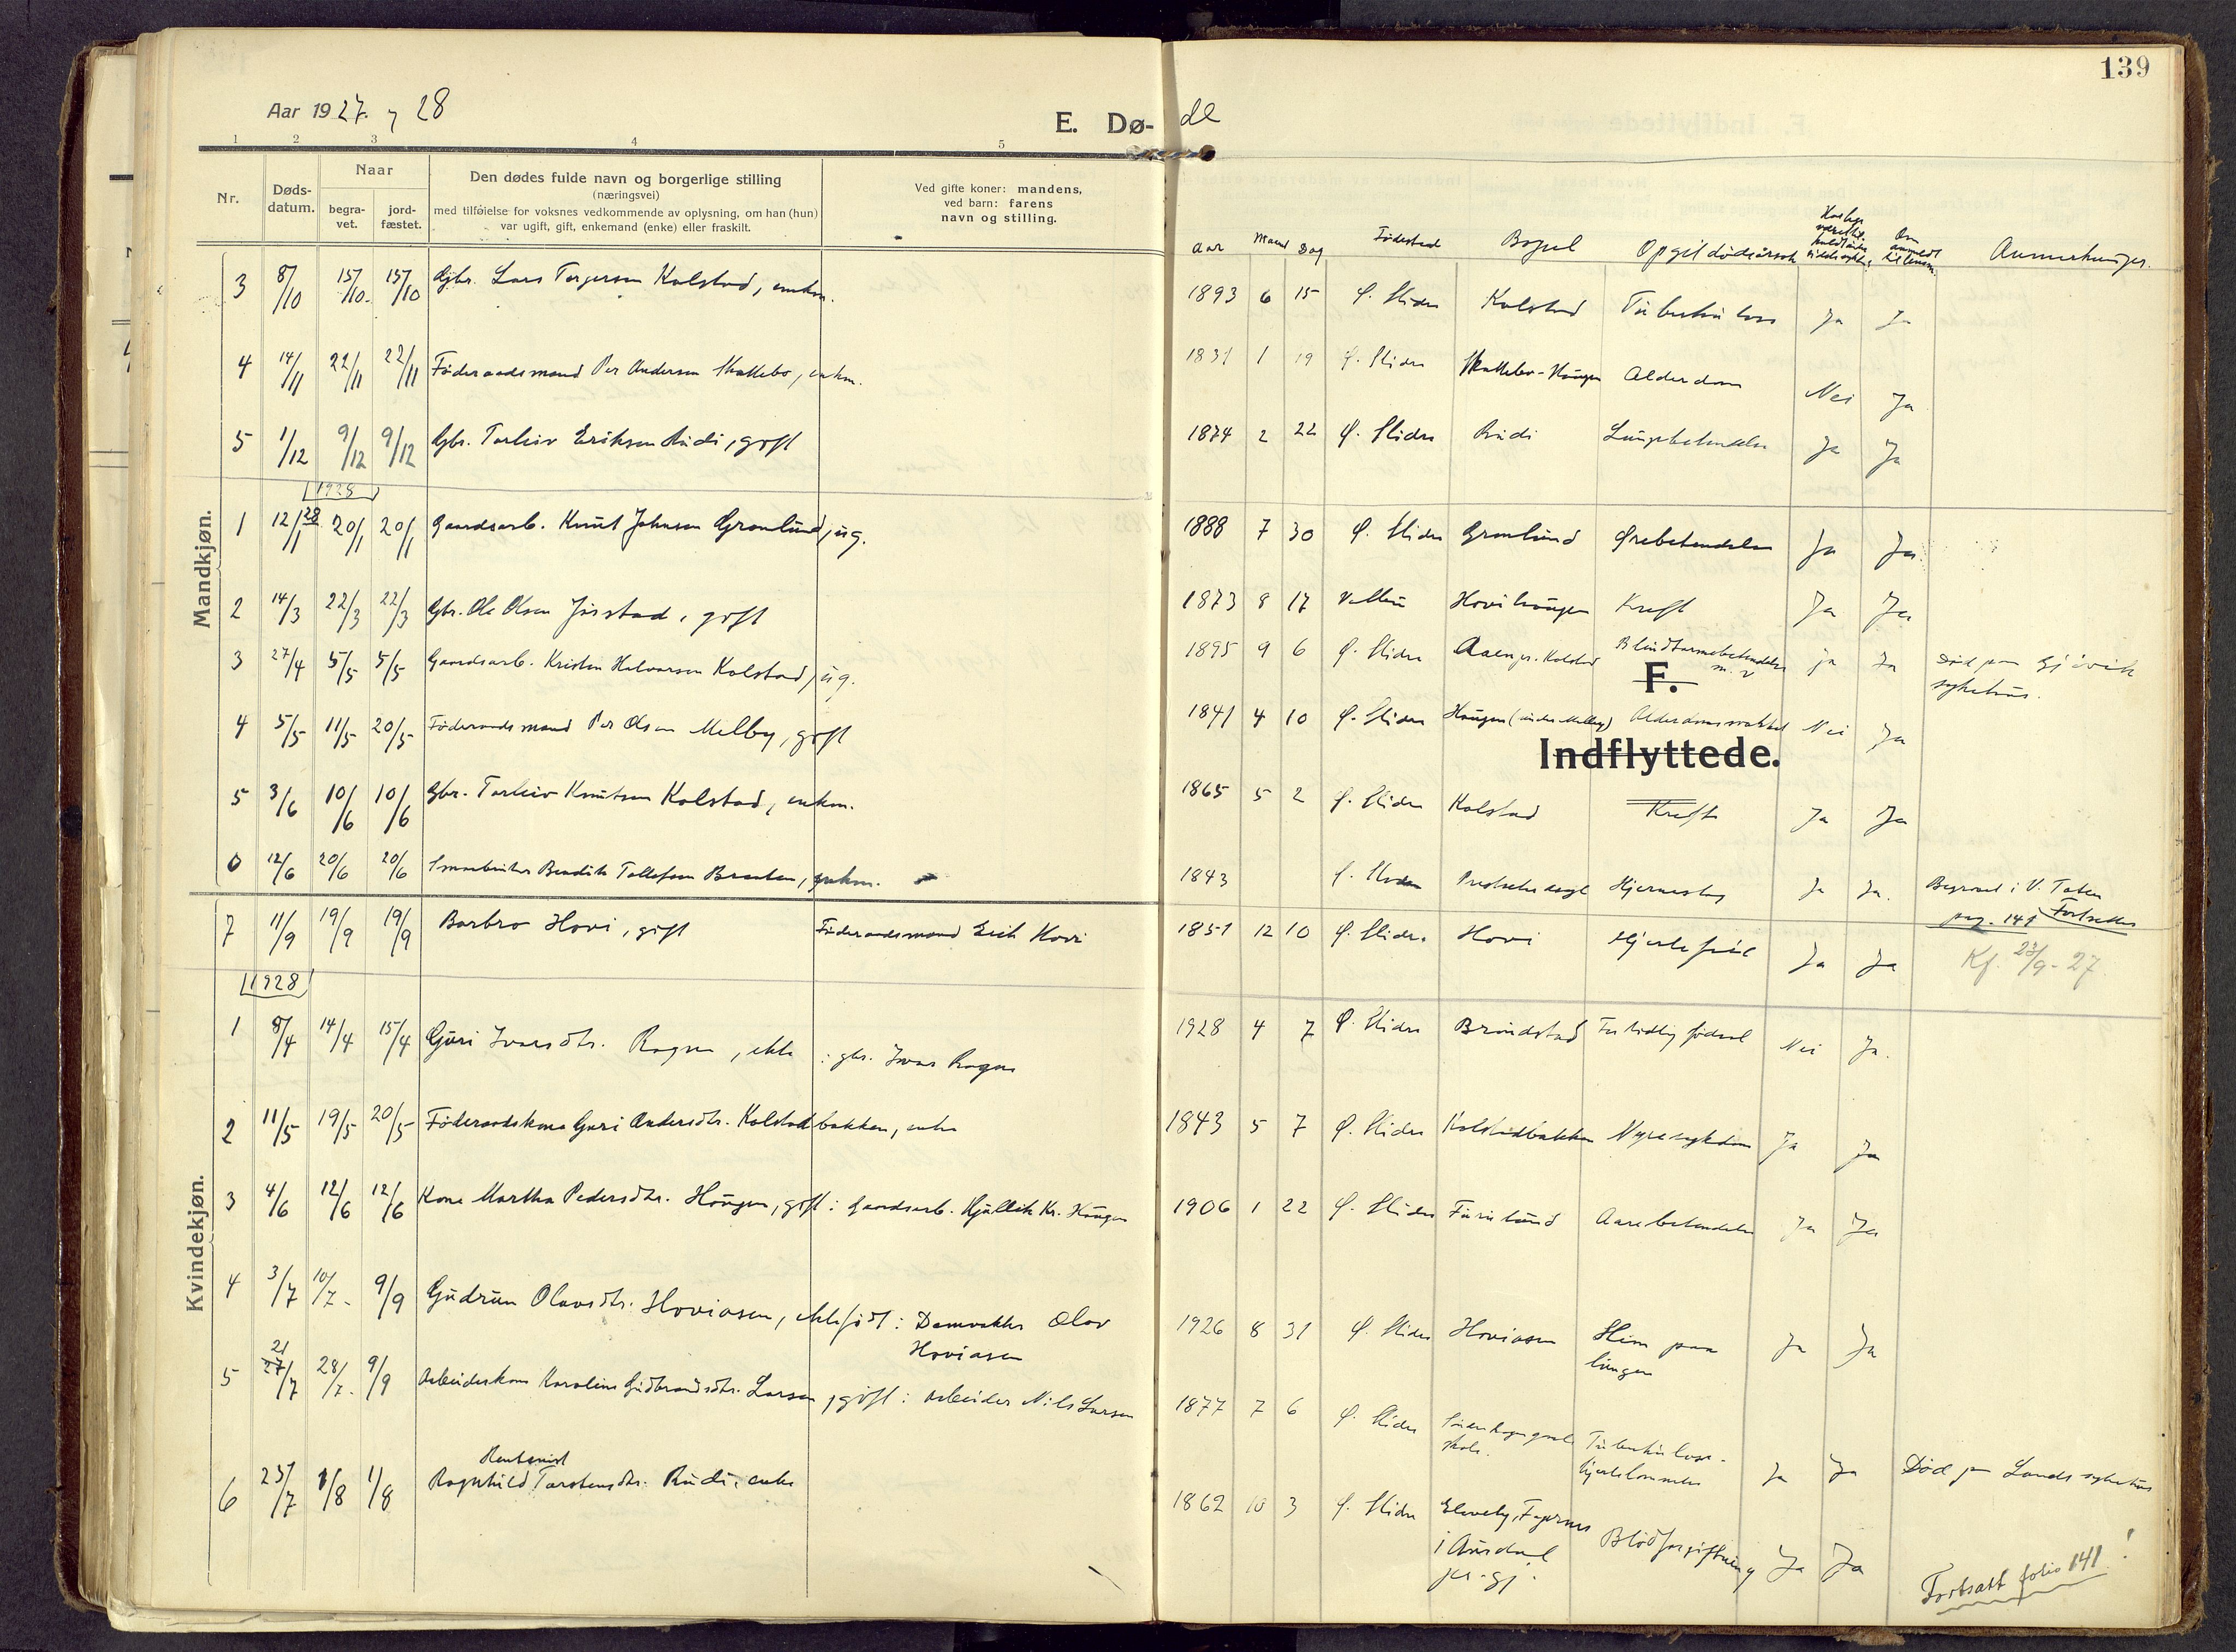 139
Aar 1927 & 28
E. Dø- de
1 2 3 4 5
Nr.
Døds-
datum.
Naar
begra-
vet.
jord-
fæstet.
Den dødes fulde navn og borgerlige stilling
(næringsvei)
med tilføielse for voksnes vedkommende av oplysning, om han (hun)
var ugift, gift, enkemand (enke) eller fraskilt.
Ved gifte koner: mandens,
ved barn: farens
navn og stilling.
Aar Maaned Dag Fødested Bopæl Opgit dødsårsak Anmerkninger.
Mandkjøn.
3 8/10 15/10 15/10 Gbr. Lars Torgersen Kolstad, enkm. 1893 6 15 Ø. Slidre Kolstad Tuberkulose Ja Ja
4 14/11 22/11 22/11 Føderaadsmand Per Andersen Skattebo, enkm. 1831 1 19 Ø. Slidre Skattebo-Haugen Alderdom Nei Ja
5 1/12 9/12 9/12 Gbr. Torleiv Eriksen Rudi, gift 1874 2 22 Ø. Slidre Rudi Lungebetendelse Ja Ja
1928
1 12/1 28 20/1 20/1 Gaardsarb. Knut Johnsen Gronlund, ug. 1888 7 30 Ø. Slidre Gronlund Ørebetendelse Ja Ja
2 14/3 22/3 22/3 Gbr. Ole Olsen Jirstad, gift 1873 8 17 Hovihaugen Kreft Ja Ja
3 27/4 5/5 5/5 Gaardsarb. Kristen Halvorsen Kolstad, ug. 1895 9 6 Ø. Slidre Kolstad Blindtarmsbetendelse m. v. ja Ja Død paa Gjøvik
sykehus.
F.
4 5/5 11/5 20/5 Føderaadsmand Per Olsen Melby, gift 1841 4 10 Ø. Slidre Haugen (under Melby) Alderdomssvakhet Nei Ja
Indflyttede.
5 3/6 10/6 10/6 Gbr. Torleiv Knutsen Kolstad, enkm. 1865 5 2 Ø. Slidre Kolstad Kreft Ja Ja
6 12/6 20/6 20/6 Smaabruker Bendik Tollefsen Braaten, enkm. 1843 Ø. Slidre Hjerneslag Ja Ja. Begravet i V. Toten
pag. 141 Fortsettes
Kvindekjøn.
7 11/9 19/9 19/9 Barbro Hovi, gift Føderaadsmand Erik Hovi 1851 12 10 Ø. Slidre Hovi Hjertefeil Ja Ja Kf. 23/9-27.
1928
1 8/4 14/4 15/4 Guri Ivarsdtr. Rogne, ekte : gbr. Ivar Rogne 1928 4 7 Ø. Slidre Brundstad For tidlig fødsel Nei Ja.
2 11/5 19/5 20/5 Føderaadskone Guri Andersdtr. Kolstadbakken, enke 1843 5 7 Ø. Slidre Kolstadbakken Nyresygdom Ja Ja
3 4/6 12/6 12/6 Kone Martha Pedersdtr. Haugen, gift : Gaardsarb. Kjøllik Kr. Haugen 1906 1 22 Ø. Slidre Furulund Aarebetendelse Ja Ja
4 3/7 10/7. 9/9 Gudrun Olavsdtr. Hoviåsen, ekte født : Damvokter Olav
Hoviåsen 1926 8 31 Ø. Slidre Hoviåsen Slim paa
lungen Ja Ja
5 21 27/7 28/7. 9/9 Arbeiderkone Karoline Gudbrandsdtr. Larsen, gift : arbeider Nils Larsen 1877 7 6 Ø. Slidre skole. Tuberkulose. Ja Ja Død paa Lands sykehus
6 23/7 1/8 1/8 Rentenist
Ragnhild Torstensdtr. Rudi, enke 1862 10 3 Ø. Slidre Elveby, Fagernes
i Aurdal
pr.gj. Blodforgiftning Ja Ja
Fortsatt folio 141!